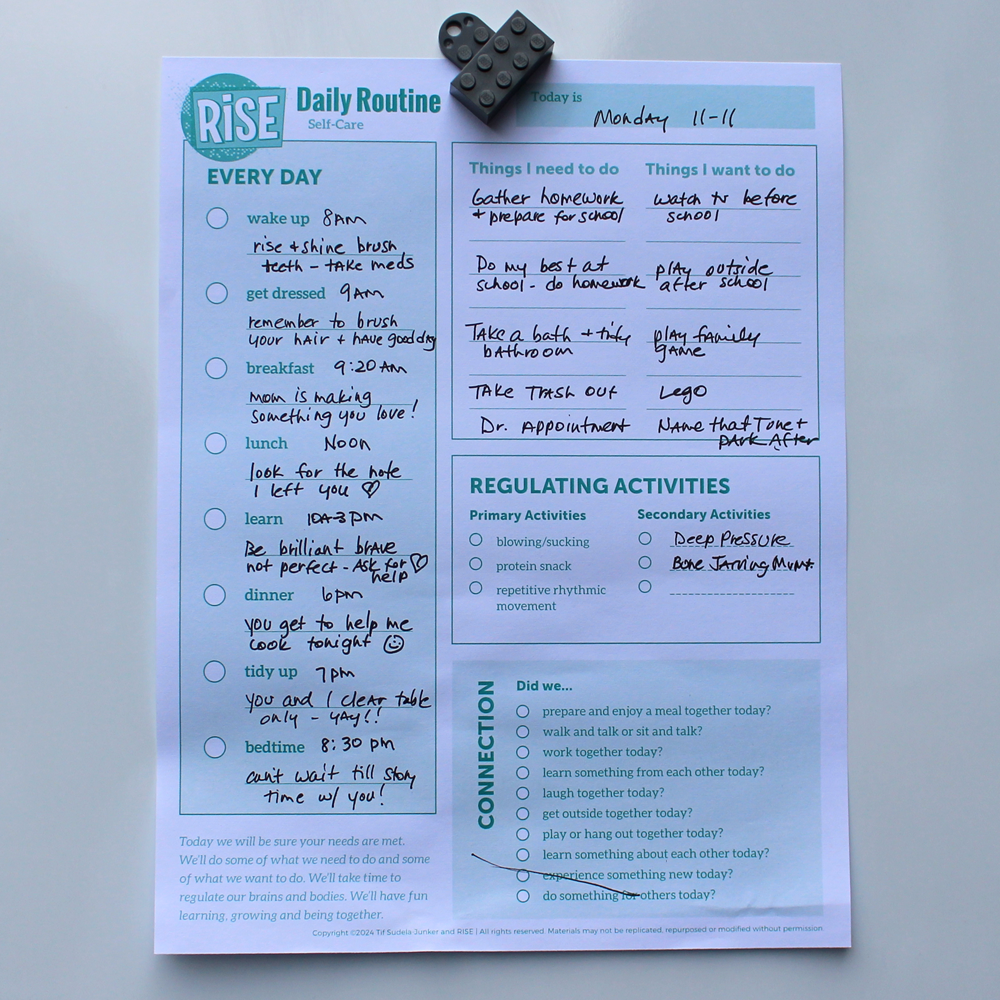 RiSE
Daily Routine
Self-Care
Today is
Monday 11-11
EVERY DAY
wake up 8AM
rise + shine brush
teeth - take meds
get dressed 9AM
remember to brush
your hair + have good day
breakfast 9:20 AM
mom is making
something you love!
lunch Noon
look for the note
I left you ♡
learn 10A-3pm
Be brilliant brave
not perfect - Ask for ♡
help
dinner 6pm
you get to help me
cook tonight ☺
tidy up 7pm
you and I clear table
only - yay!!
bedtime 8:30 pm
can't wait till story
time w/ you!
Today we will be sure your needs are met.
We'll do some of what we need to do and some
of what we want to do. We'll take time to
regulate our brains and bodies. We'll have fun
learning, growing and being together.
Things I need to do
Gather homework
+ prepare for school
Do my best at
school - do homework
Take a bath + tidy
bathroom
Take Trash out
Dr. Appointment
Things I want to do
watch tv before
school
play outside
after school
play family
game
Lego
Name that Tune +
park After
REGULATING ACTIVITIES
Primary Activities
blowing/sucking
protein snack
repetitive rhythmic
movement
Secondary Activities
Deep Pressure
Bone Jarring Mvmt
CONNECTION
Did we...
prepare and enjoy a meal together today?
walk and talk or sit and talk?
work together today?
learn something from each other today?
laugh together today?
get outside together today?
play or hang out together today?
learn something about each other today?
experience something new today?
do something for others today?
Copyright ©2024 Tif Sudela-Junker and RISE | All rights reserved. Materials may not be replicated, repurposed or modified without permission.